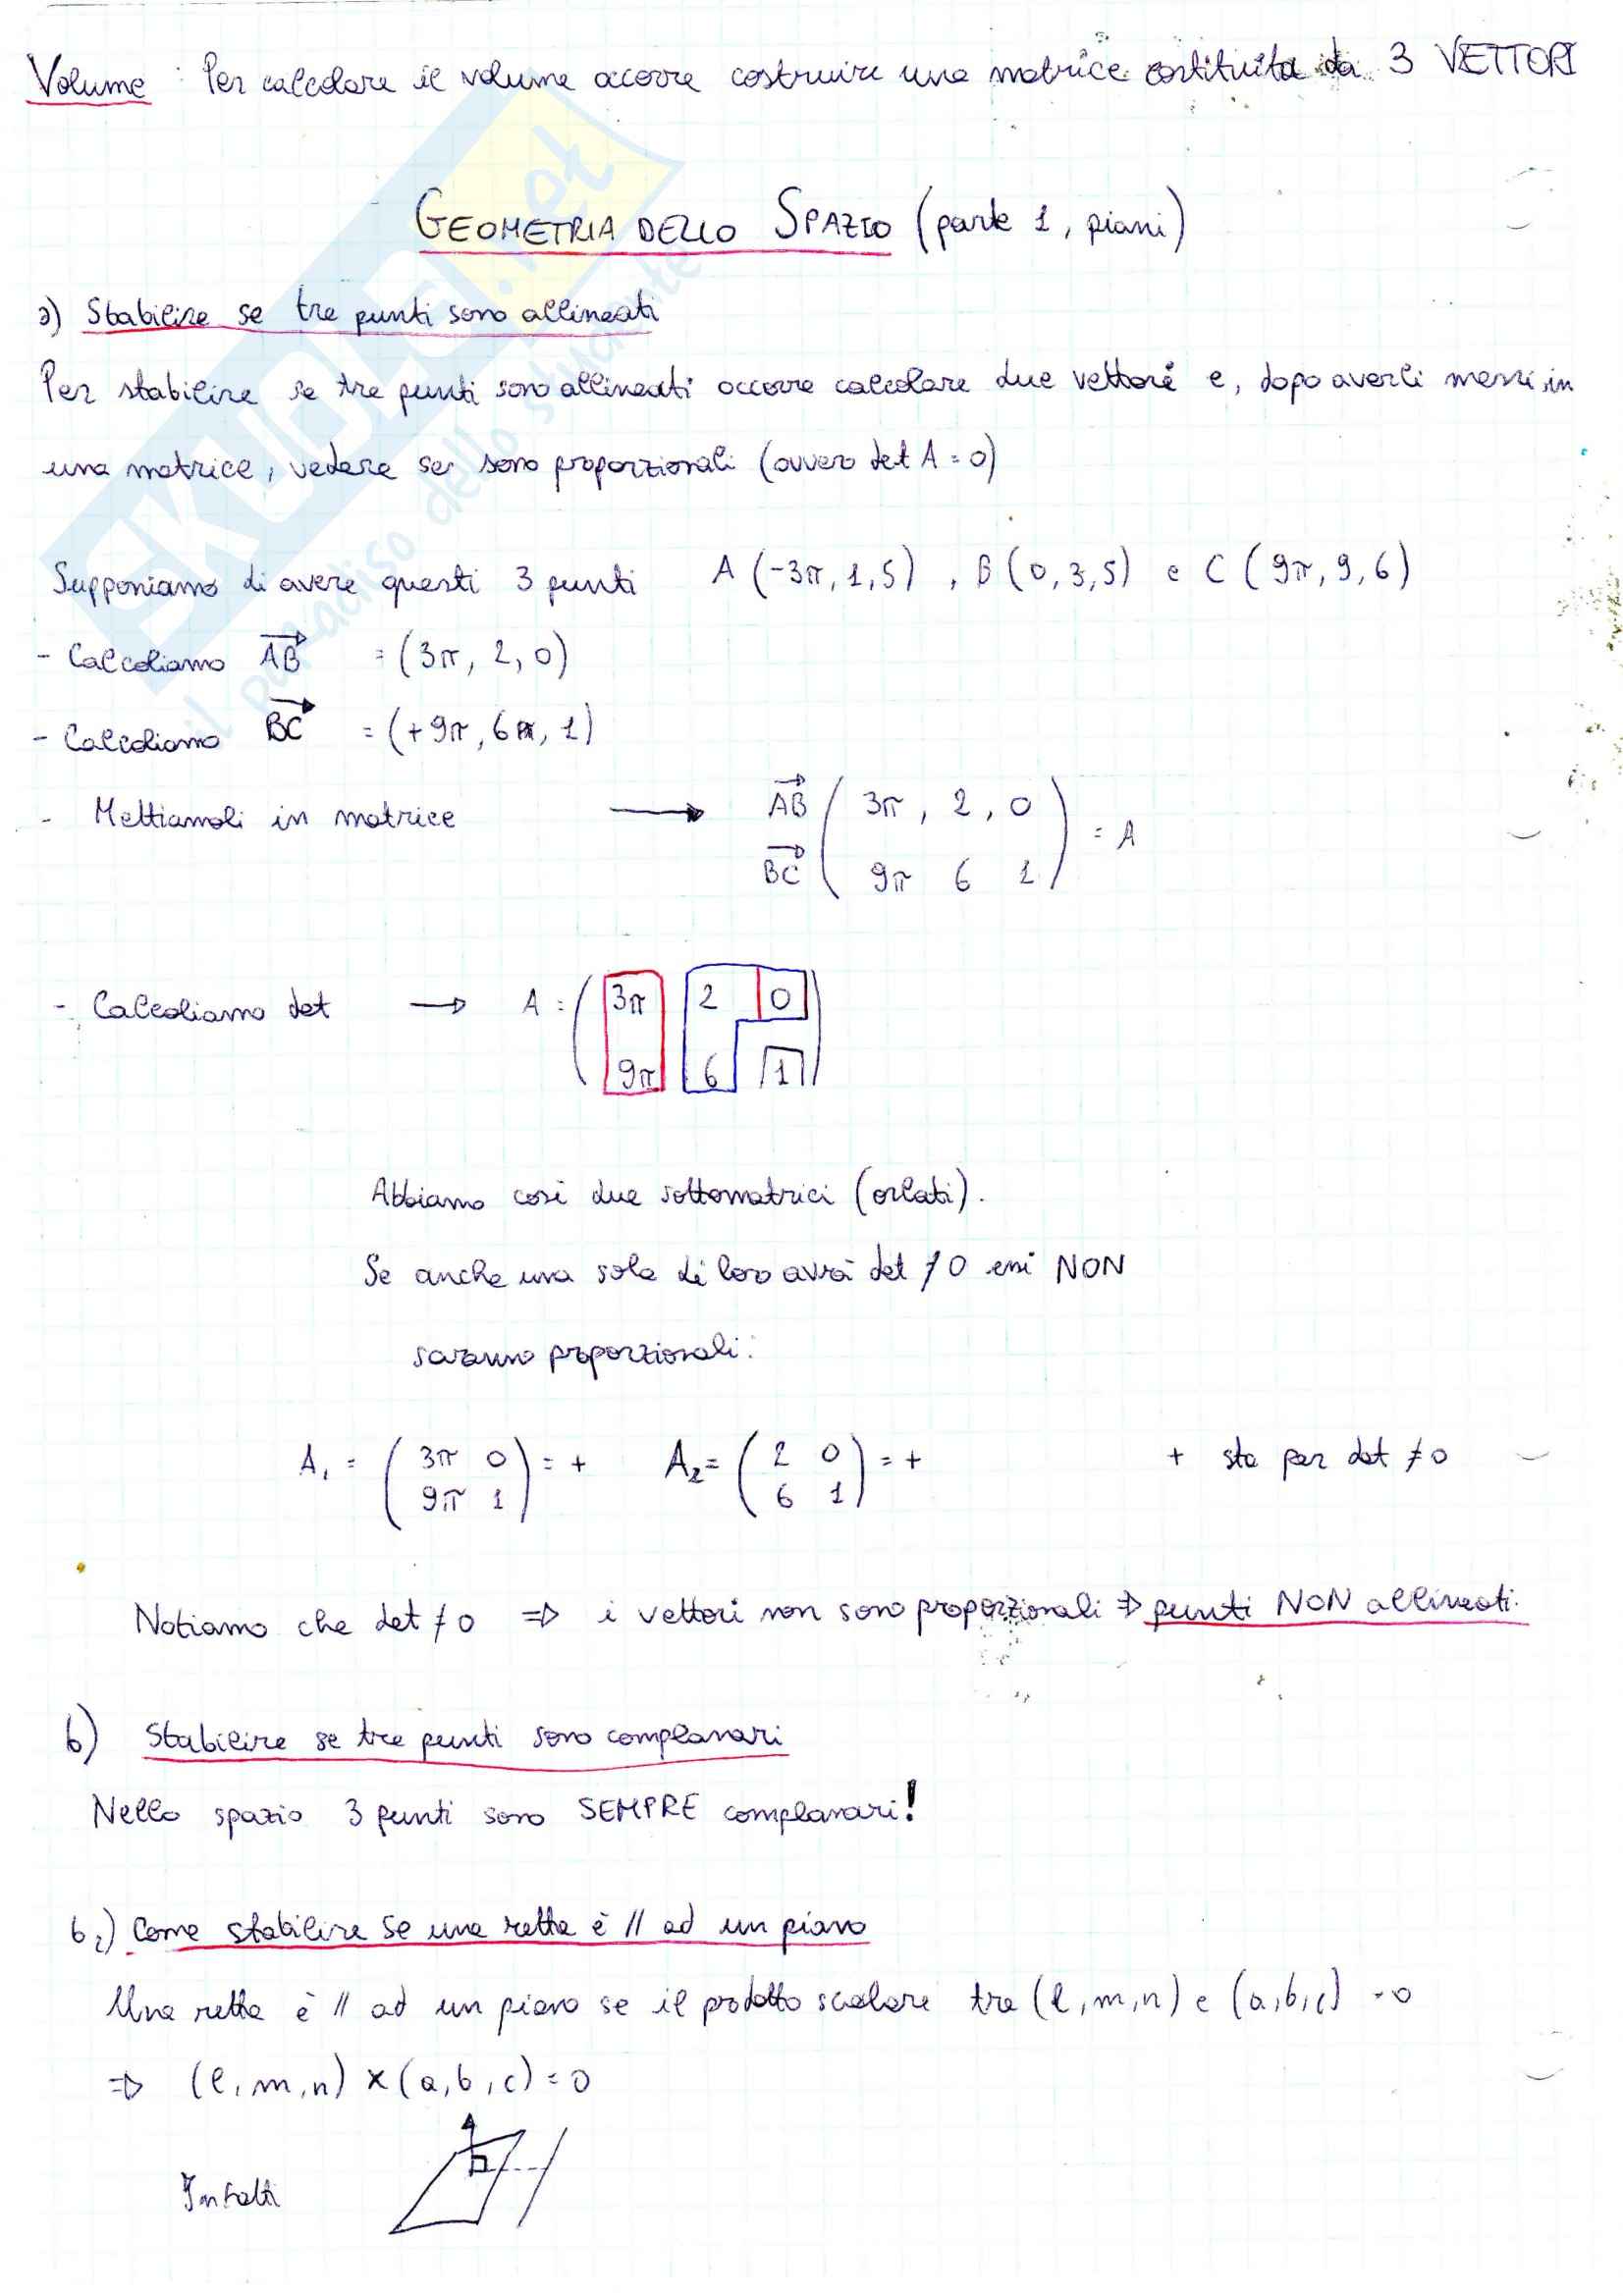 Volume : Per calcolare il volume occorre costruire una matrice costituita da 3 VETTORI
GEOMETRIA DELLO SPAZIO (parte 1, piani)
a) Stabilire se tre punti sono allineati
Per stabilire se tre punti sono allineati occorre calcolare due vettori e, dopo averli messi in
una matrice, vedere se sono proporzionali (ovvero det A = 0)
Supponiamo di avere questi 3 punti A (-3π, 1, 5) , B (0, 3, 5) e C (9π, 9, 6)
- Calcoliamo AB = (3π, 2, 0)
- Calcoliamo BC = (+9π, 6, 1)
- Mettiamoli in matrice → AB ( 3π , 2 , 0
BC 9π 6 1 ) = A
- Calcoliamo det → A = ( 3π 2 0
9π 6 1 )
Abbiamo così due sottomatrici (orlati).
Se anche una sola di loro avrà det ≠ 0 essi NON
saranno proporzionali:
A₁ = ( 3π 0 ) = + A₂ = ( 2 0 ) = + + sta per det ≠ 0
9π 1 6 1
Notiamo che det ≠ 0 ⇒ i vettori non sono proporzionali ⇒ punti NON allineati.
b) Stabilire se tre punti sono complanari
Nello spazio 3 punti sono SEMPRE complanari!
b₂) Come stabilire se una retta è // ad un piano
Una retta è // ad un piano se il prodotto scalare tra (l, m, n) e (a, b, c) = 0
⇒ (l, m, n) × (a, b, c) = 0
Infatti
SKUOLA.net
il paradiso dello studente